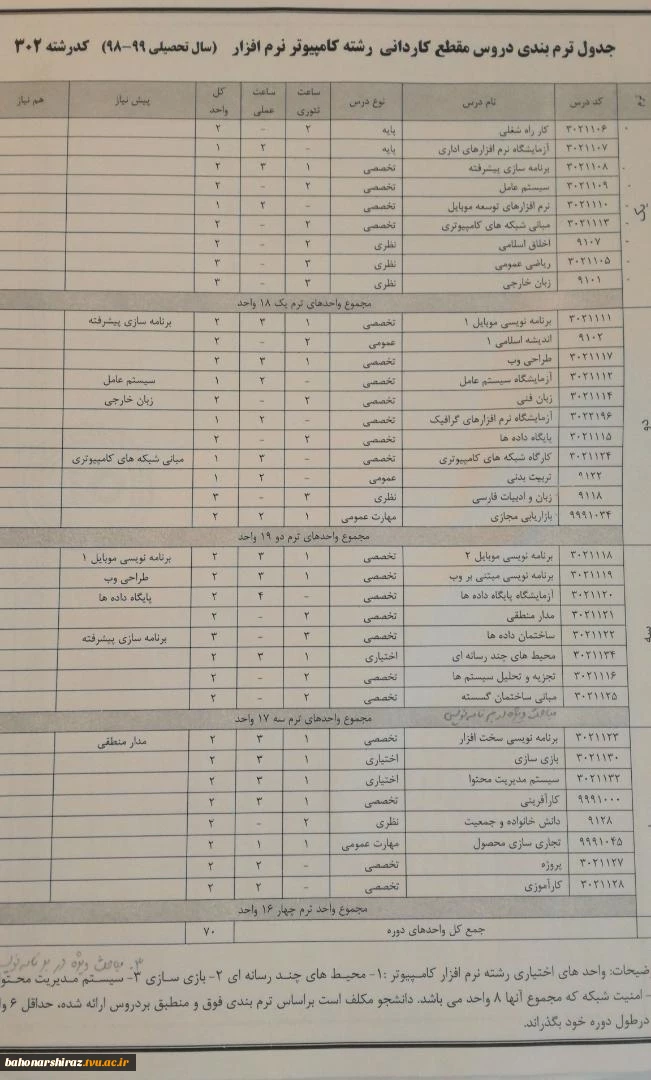 جدول ترم بندی دروس مقطع کاردانی رشته کامپیوتر نرم افزار (سال تحصیلی ۹۹-۹۸) کدرشته ۳۰۲
ترم کد درس نام درس نوع درس ساعت تئوری ساعت عملی کل واحد پیش نیاز هم نیاز
یک
۳۰۲۱۱۰۶ کار راه شغلی پایه ۲ - ۲
۳۰۲۱۱۰۷ آزمایشگاه نرم افزارهای اداری پایه - ۲ ۱
۳۰۲۱۱۰۸ برنامه سازی پیشرفته تخصصی ۱ ۳ ۲
۳۰۲۱۱۰۹ سیستم عامل تخصصی ۲ - ۲
۳۰۲۱۱۱۰ نرم افزارهای توسعه موبایل تخصصی - ۲ ۱
۳۰۲۱۱۱۳ مبانی شبکه های کامپیوتری تخصصی ۲ - ۲
۹۱۰۷ اخلاق اسلامی نظری ۲ - ۲
۳۰۲۱۱۰۵ ریاضی عمومی نظری ۳ - ۳
۹۱۰۱ زبان خارجی نظری ۳ - ۳
مجموع واحدهای ترم یک ۱۸ واحد
دو
۳۰۲۱۱۱۱ برنامه نویسی موبایل ۱ تخصصی ۱ ۳ ۲ برنامه سازی پیشرفته
۹۱۰۲ اندیشه اسلامی ۱ عمومی ۲ - ۲
۳۰۲۱۱۱۷ طراحی وب تخصصی ۱ ۳ ۲
۳۰۲۱۱۱۲ آزمایشگاه سیستم عامل تخصصی - ۲ ۱ سیستم عامل
۳۰۲۱۱۱۴ زبان فنی تخصصی ۲ - ۲ زبان خارجی
۳۰۲۲۱۹۶ آزمایشگاه نرم افزارهای گرافیک تخصصی - ۲ ۱
۳۰۲۱۱۱۵ پایگاه داده ها تخصصی ۲ - ۲
۳۰۲۱۱۲۴ کارگاه شبکه های کامپیوتری تخصصی - ۳ ۱ مبانی شبکه های کامپیوتری
۹۱۲۲ تربیت بدنی عمومی - ۲ ۱
۹۱۱۸ زبان و ادبیات فارسی نظری ۳ - ۳
۹۹۹۱۰۳۴ بازاریابی مجازی مهارت عمومی ۱ ۲ ۲
مجموع واحدهای ترم دو ۱۹ واحد
سه
۳۰۲۱۱۱۸ برنامه نویسی موبایل ۲ تخصصی ۱ ۳ ۲ برنامه نویسی موبایل ۱
۳۰۲۱۱۱۹ برنامه نویسی مبتنی بر وب تخصصی ۱ ۳ ۲ طراحی وب
۳۰۲۱۱۲۰ آزمایشگاه پایگاه داده ها تخصصی - ۴ ۲ پایگاه داده ها
۳۰۲۱۱۲۱ مدار منطقی تخصصی ۲ - ۲
۳۰۲۱۱۲۲ ساختمان داده ها تخصصی ۳ - ۳ برنامه سازی پیشرفته
۳۰۲۱۱۳۴ محیط های چند رسانه ای اختیاری ۱ ۳ ۲
۳۰۲۱۱۱۶ تجزیه و تحلیل سیستم ها تخصصی ۲ - ۲
۳۰۲۱۱۲۵ مبانی ساختمان گسسته تخصصی ۲ - ۲
مجموع واحدهای ترم سه ۱۷ واحد مباحث ویژه در برنامه نویسی
۳۰۲۱۱۲۳ برنامه نویسی سخت افزار تخصصی ۱ ۳ ۲ مدار منطقی
۳۰۲۱۱۳۰ بازی سازی اختیاری ۱ ۳ ۲
۳۰۲۱۱۳۲ سیستم مدیریت محتوا اختیاری ۱ ۳ ۲
۹۹۹۱۰۰۰ کارآفرینی تخصصی ۱ ۳ ۲
۹۱۲۸ دانش خانواده و جمعیت نظری ۲ - ۲
۹۹۹۱۰۴۵ تجاری سازی محصول مهارت عمومی ۱ ۱ ۲
۳۰۲۱۱۲۷ پروژه تخصصی - ۲ ۲
۳۰۲۱۱۲۸ کارآموزی تخصصی - ۲ ۲
مجموع واحد ترم چهار ۱۶ واحد
جمع کل واحدهای دوره ۷۰
۳. مباحث ویژه در برنامه نویسی
ضیحات: واحد های اختیاری رشته نرم افزار کامپیوتر :۱- محیط های چند رسانه ای ۲- بازی سازی ۳- سیستم مدیریت محتوا
- امنیت شبکه که مجموع آنها ۸ واحد می باشد. دانشجو مکلف است براساس ترم بندی فوق و منطبق بردروس ارائه شده، حداقل ۶ وا
درطول دوره خود بگذراند.
bahonarshiraz.tvu.ac.ir